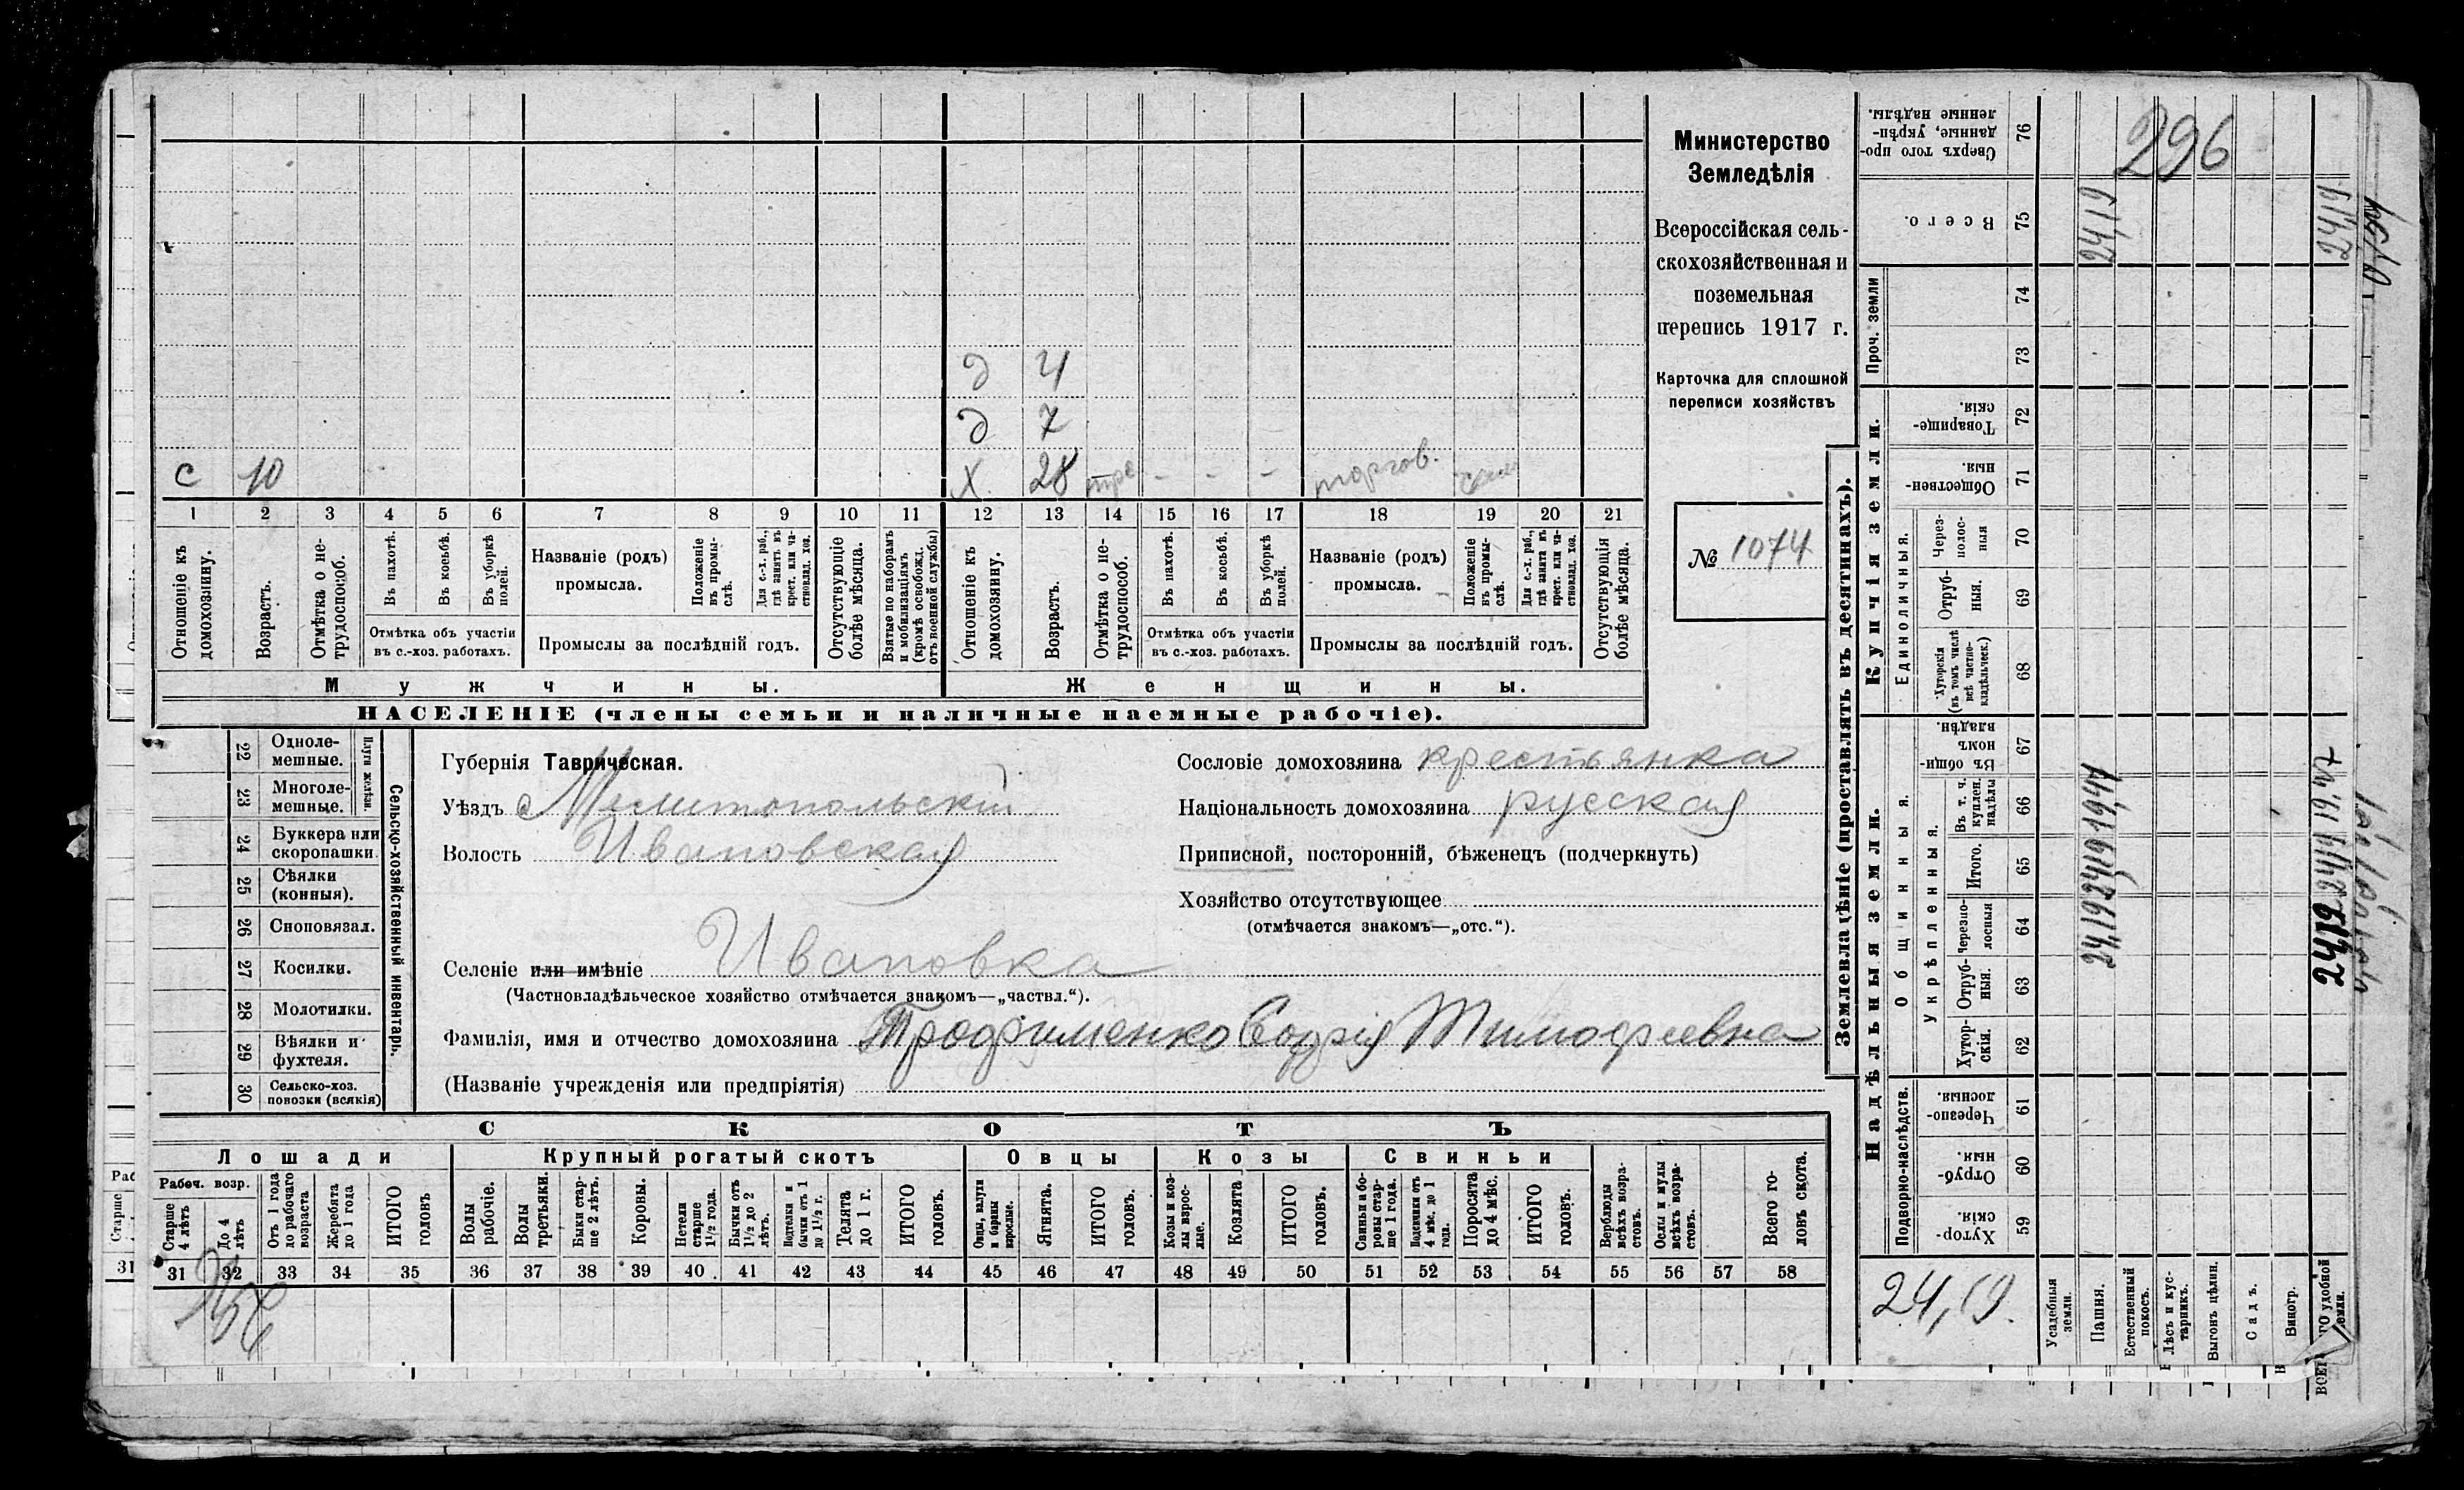 Министерство
Земледѣлія
Всероссійская сель-
скохозяйственная и
поземельная
перепись 1917 г.
Карточка для сплошной
переписи хозяйствъ
№ 1074
д 4
д 7
с 10 х 28 – – – торгов.
1 2 3 4 5 6 7 8 9 10 11 12 13 14 15 16 17 18 19 20 21
Отношеніе къ домохозяину.
Возрастъ.
Отмѣтка о не-трудоспособ.
Въ пахотѣ.
Въ косьбѣ.
Въ уборкѣ полей.
Отмѣтка объ участіи
въ с.-хоз. работахъ.
Названіе (родъ)
промысла.
Положеніе въ промы-слѣ.
Для с.-х. раб., гдѣ занятъ въ крест. или ча-стновлад. хоз.
Промыслы за послѣдній годъ.
Отсутствующіе болѣе мѣсяца.
Взятые по наборамъ и мобилизаціямъ (кромѣ освобожд. отъ военной службы)
Отношеніе къ домохозяину.
Возрастъ.
Отмѣтка о не-трудоспособ.
Въ пахотѣ.
Въ косьбѣ.
Въ уборкѣ полей.
Отмѣтка объ участіи
въ с.-хоз. работахъ.
Названіе (родъ)
промысла.
Положеніе въ промы-слѣ.
Для с.-х. раб., гдѣ занята въ крест. или ча-стновлад. хоз.
Промыслы за послѣдній годъ.
Отсутствующія болѣе мѣсяца.
Мужчины. Женщины.
НАСЕЛЕНІЕ (члены семьи и наличные наемные рабочіе).
22 Одноле-мешные.
23 Многоле-мешные.
Плуги желѣзн.
24 Буккера или скоропашки.
25 Сѣялки (конныя).
26 Сноповязал.
27 Косилки.
28 Молотилки.
29 Вѣялки и фухтеля.
30 Сельско-хоз. повозки (всякія)
Сельско-хозяйственный инвентарь.
Губернія Таврическая.
Уѣздъ Мелитопольскій
Волость Ивановская
Селеніе или имѣніе Ивановка
(Частновладѣльческое хозяйство отмѣчается знакомъ—„частвл.“).
Сословіе домохозяина крестьянка
Національность домохозяина русская
Приписной, посторонній, бѣженецъ (подчеркнуть)
Хозяйство отсутствующее
(отмѣчается знакомъ—„отс.“).
Фамилія, имя и отчество домохозяина Трофименко Софія Тимофеевна
(Названіе учрежденія или предпріятія)
СКОТЪ
Лошади Крупный рогатый скотъ Овцы Козы Свиньи
Рабоч. возр.
Старше 4 лѣтъ
До 4 лѣтъ
Отъ 1 года до рабочаго возраста
Жеребята до 1 года
ИТОГО головъ
Волы рабочіе.
Волы третьяки.
Быки стар-ше 2 лѣтъ.
Коровы.
Нетели старше 1½ года.
Бычки отъ 1½ до 2 лѣтъ.
Подтелки и бычки отъ 1 до 1½ г.
Телята до 1 г.
ИТОГО головъ.
Овцы, валухи и бараны взрослые.
Ягнята.
ИТОГО головъ.
Козы и коз-лы взрос-лые.
Козлята
ИТОГО головъ.
Свиньи и бо-ровы стар-ше 1 года.
Подсвинки отъ 4 мѣс. до 1 года.
Поросята до 4 мѣс.
ИТОГО головъ.
Верблюды всѣхъ возра-стовъ.
Ослы и мулы всѣхъ возра-стовъ.
Всего го-ловъ скота.
31 32 33 34 35 36 37 38 39 40 41 42 43 44 45 46 47 48 49 50 51 52 53 54 55 56 57 58
Землевладѣніе (проставлять въ десятинахъ).
Надѣльныя земли.
Купчія земли.
Проч. земли
Подворно-наслѣдств.
Общинныя.
Укрѣпленныя.
Единоличныя.
Сверхъ того про-данные, укрѣп-ленные надѣлы. 76
296
Всего. 75
24,19
24,19
74
73
Товарище-скія. 72
Обществен-ныя. 71
Через-полос-ныя 70
Отруб-ныя. 69
Хуторскія (въ томъ числѣ всѣ частно-владѣльческ.) 68
Въ общин-номъ владѣн. 67
Въ т. ч. куплен. надѣлы 66
Итого. 65
Черезпо-лосныя 64
Отруб-ныя. 63
Хутор-скія. 62
Черезпо-лосныя. 61
Отруб-ныя. 60
Хутор-скія. 59
24,19.
Усадебныя земли.
Пашня.
Естественный покосъ.
Лѣсъ и кус-тарникъ.
Выгонъ цѣлин.
Садъ.
Виногр.